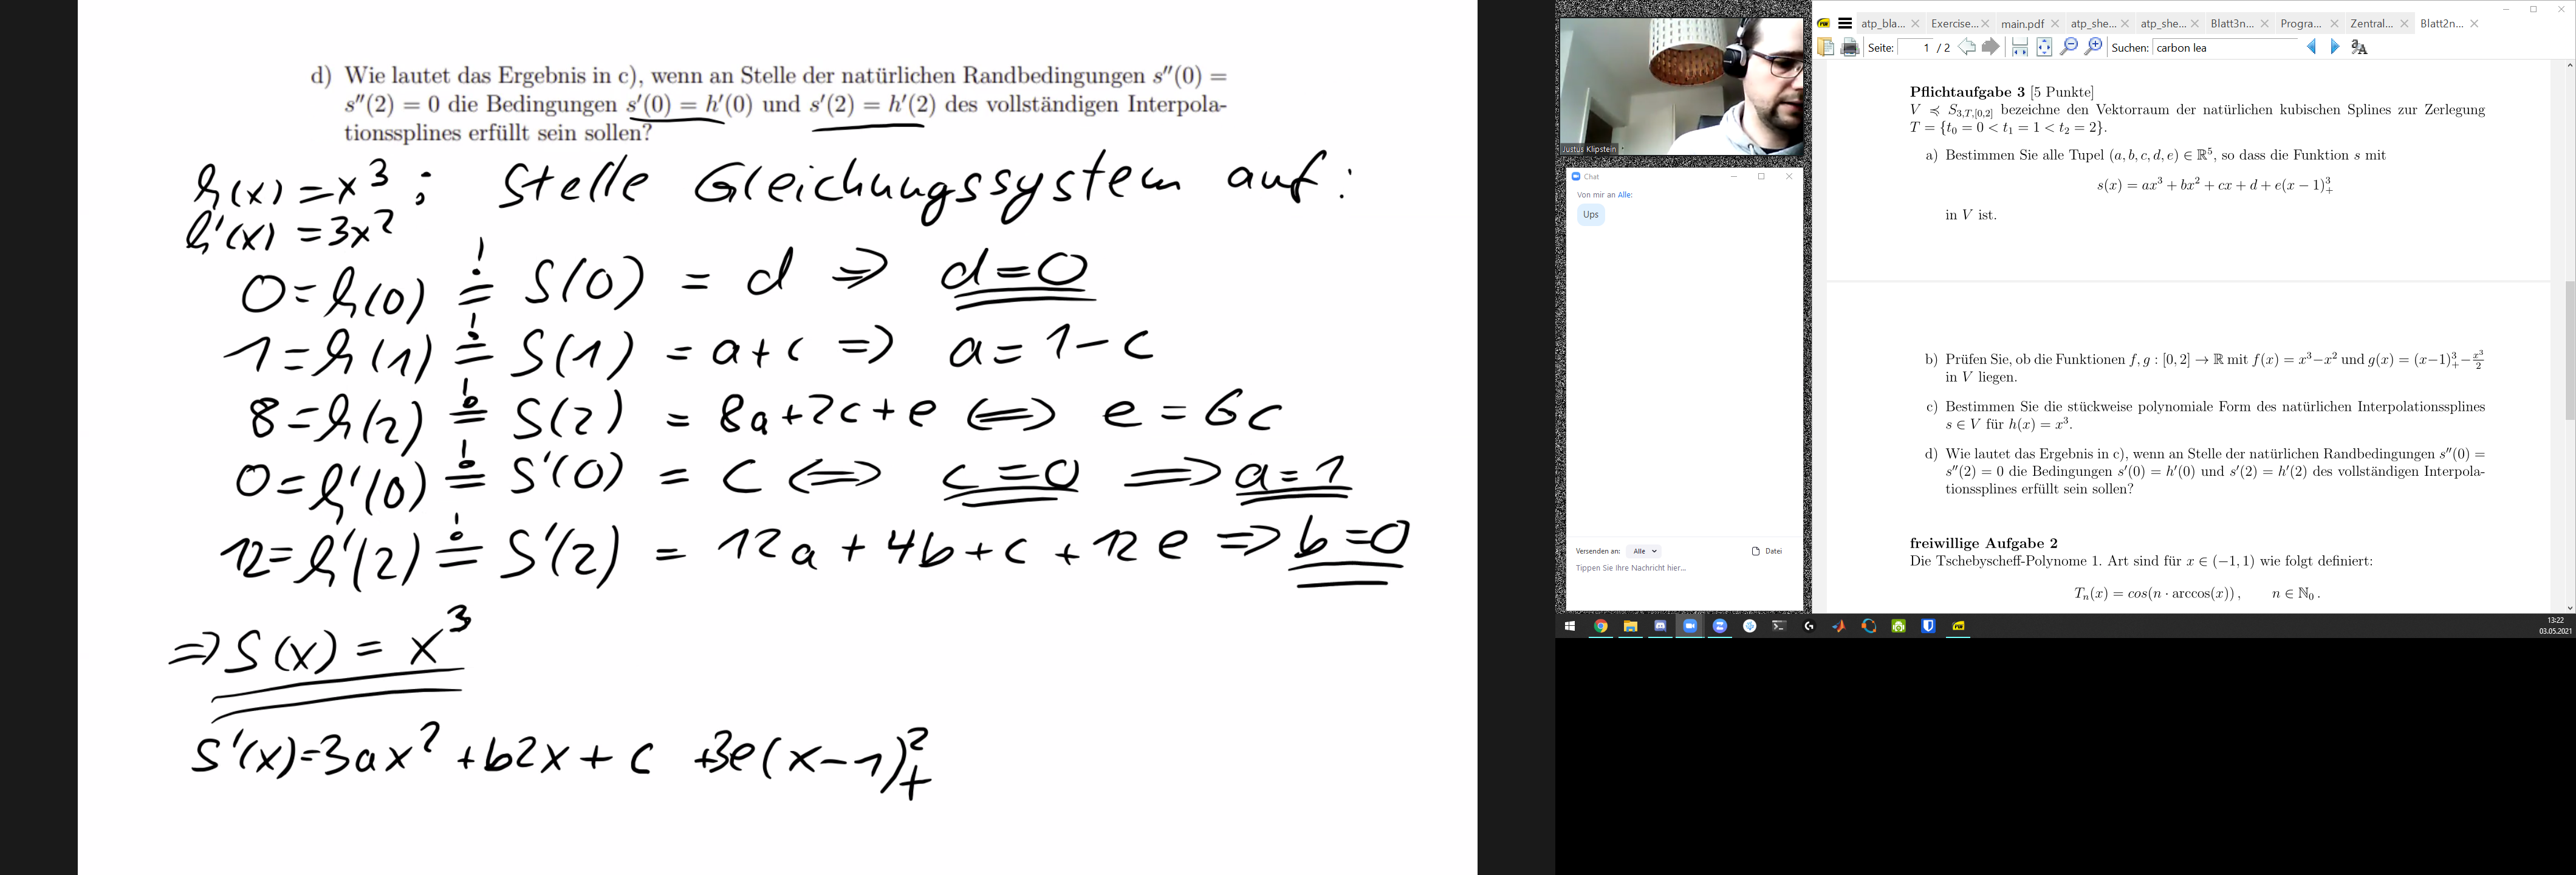 d) Wie lautet das Ergebnis in c), wenn an Stelle der natürlichen Randbedingungen s″(0) =
s″(2) = 0 die Bedingungen s′(0) = h′(0) und s′(2) = h′(2) des vollständigen Interpola-
tionssplines erfüllt sein sollen?
h(x) = x³ ; Stelle Gleichungssystem auf:
h'(x) = 3x²
0 = h(0) =! S(0) = d => d = 0
1 = h(1) =! S(1) = a + c => a = 1 - c
8 = h(2) =! S(2) = 8a + 2c + e <=> e = 6c
0 = h'(0) =! S'(0) = c <=> c = 0 => a = 1
12 = h'(2) =! S'(2) = 12a + 4b + c + 12e => b = 0
=> S(x) = x³
S'(x) = 3ax² + b2x + c + 3e(x-1)²₊
Justus Klipstein
Chat
Von mir an Alle:
Ups
Versenden an: Alle Datei
Tippen Sie Ihre Nachricht hier...
atp_bla... Exercise... main.pdf atp_she... atp_she... Blatt3n... Progra... Zentral... Blatt2n...
Seite: 1 / 2 Suchen: carbon lea
Pflichtaufgabe 3 [5 Punkte]
V ≼ S₃,T,[0,2] bezeichne den Vektorraum der natürlichen kubischen Splines zur Zerlegung
T = {t₀ = 0 < t₁ = 1 < t₂ = 2}.
a) Bestimmen Sie alle Tupel (a, b, c, d, e) ∈ ℝ⁵, so dass die Funktion s mit
s(x) = ax³ + bx² + cx + d + e(x − 1)³₊
in V ist.
b) Prüfen Sie, ob die Funktionen f, g : [0, 2] → ℝ mit f(x) = x³−x² und g(x) = (x−1)³₊ − x³/2
in V liegen.
c) Bestimmen Sie die stückweise polynomiale Form des natürlichen Interpolationssplines
s ∈ V für h(x) = x³.
d) Wie lautet das Ergebnis in c), wenn an Stelle der natürlichen Randbedingungen s″(0) =
s″(2) = 0 die Bedingungen s′(0) = h′(0) und s′(2) = h′(2) des vollständigen Interpola-
tionssplines erfüllt sein sollen?
freiwillige Aufgabe 2
Die Tschebyscheff-Polynome 1. Art sind für x ∈ (−1, 1) wie folgt definiert:
Tₙ(x) = cos(n · arccos(x)) , n ∈ ℕ₀ .
13:22
03.05.2021